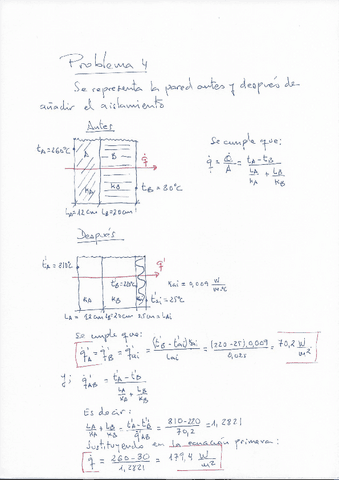 Problema 4
Se representa la pared antes y después de
añadir el aislamiento
Antes
Se cumple que:
tA=260ºC
A B
q̇
q̇ = Q̇/A = (tA-tB)/(LA/kA + LB/kB)
kA kB
tB=30ºC
LA=12cm LB=20cm
Después
t'A=310ºC
q̇'
t'B=220ºC
kai=0,009 W/mºC
kA kB
t'ai=25ºC
LA=12cm LB=20cm 2,5cm=Lai
Se cumple que:
q̇'A = q̇'B = q̇'ai = (t'B-t'ai)kai/Lai = (220-25).0,009/0,025 = 70,2 W/m²
Y; q̇'AB = (t'A-t'B)/(LA/kA + LB/kB)
Es decir:
LA/kA + LB/kB = (t'A-t'B)/q̇'AB = (310-220)/70,2 = 1,2821
Sustituyendo en la ecuación primera:
q̇ = (260-30)/1,2821 = 179,4 W/m²